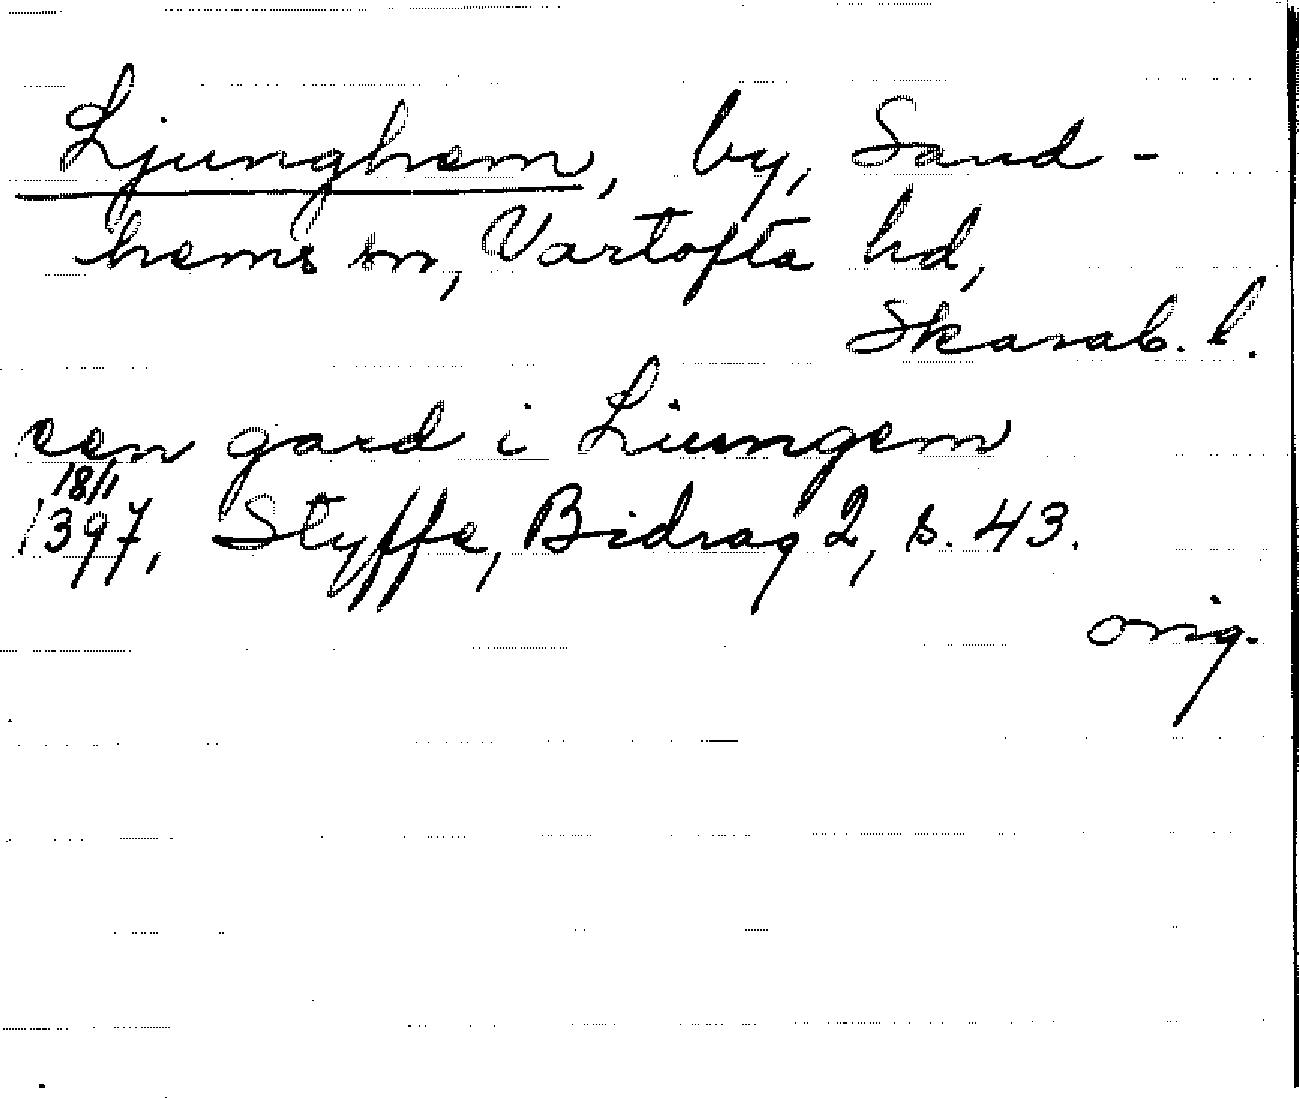 Ljunghem, by, Sand-
hems sn, Vartofta hd,
Skarab. l.
een gard i Liungem
18/1
1397, Styffe, Bidrag 2, s. 43.
orig.